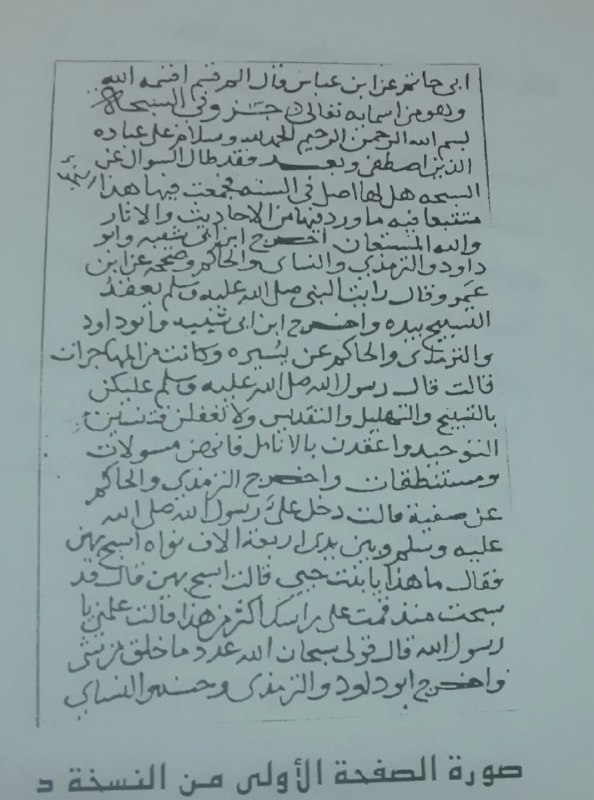 ابى حاتم عن ابن عباس قال المر قسم اقسمه الله
وهو من اسمايه تعالى جزو في السبحة
بسم الله الرحمن الرحيم الحمد لله وسلام على عباده
الذين اصطفى وبعد فقد طال السوال عن
السبحه هل لها اصل في السنه فجمعت فيها هذا
متتبعا فيه ما ورد فيها من الاحاديث والاثار
والله المستعان اخرج ابن ابى شيبه وابو
داود والترمذي والنساى والحاكم وصححه عن ابن
عمرو قال رايت النبى صلى الله عليه وسلم يعقد
التسبيح بيده واخرج ابن ابى شيبه وابوداود
والترمذى والحاكم عن بسيره وكانت من المهاجرات
قالت قال رسول الله صلى الله عليه وسلم عليكن
بالتسبيح والتهليل والتقديس ولا تغفلن فتنسين
التوحيد واعقدن بالانامل فانهن مسولات
ومستنطقات واخرج الترمذى والحاكم
عن صفية قالت دخل على رسول الله صلى الله
عليه وسلم وبين يدى اربعة الاف نواه اسبح بهن
فقال ما هذا يا بنت حيي قالت اسبح بهن قال قد
سبحت منذ قمت على راسك اكثر من هذا قالت علمنى يا
رسول الله قال قولى سبحان الله عدد ما خلق من شى
واخرج ابو داود والترمذى وحسنه والنساي
صورة الصفحة الأولى من النسخة د